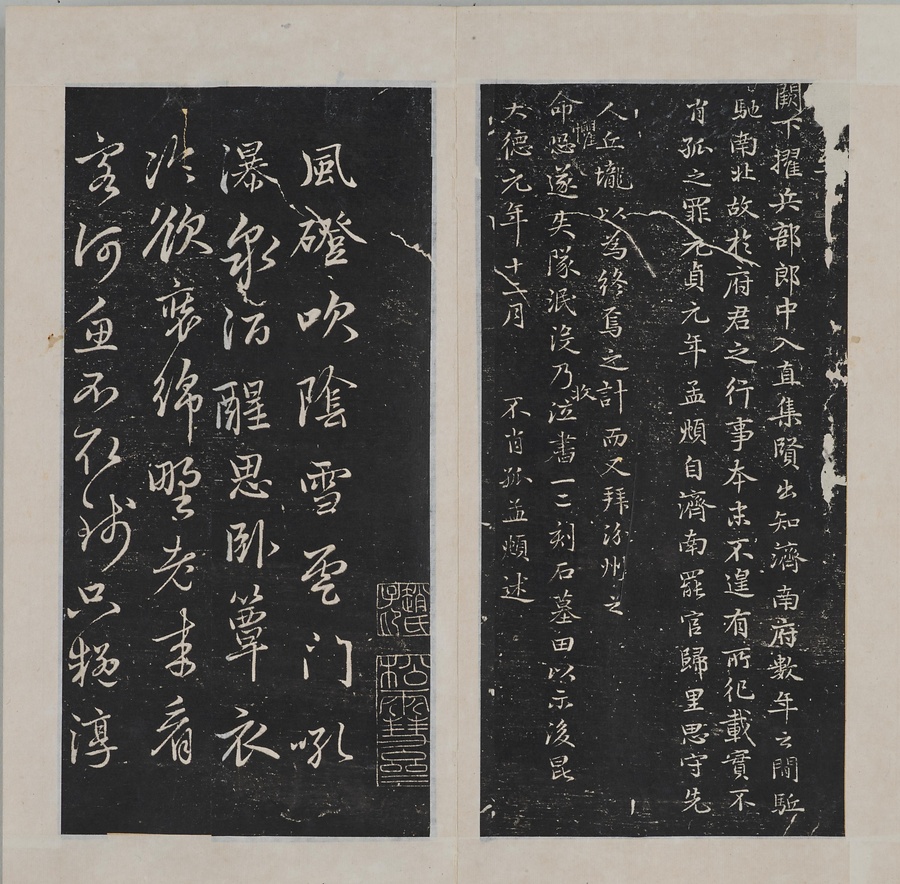 闕下擢兵部郎中入直集賢出知濟南府數年之間駈
馳南北故於府君之行事本末不遑有所紀載實不
肖孤之罪元貞元年孟頫自濟南罷官歸里思守先
人丘壠以為終焉之計而又拜汾州之
懼
收
命恐遂失隊泯沒乃泣書一二刻石墓田以示後昆
大德元年十二月 不肖孤孟頫述
趙氏子昂
松雪齋
風磴吹陰雪雲門吼
瀑泉酒醒思臥簟衣
冷欲裝綿野老來看
客河魚不取錢只疑淳